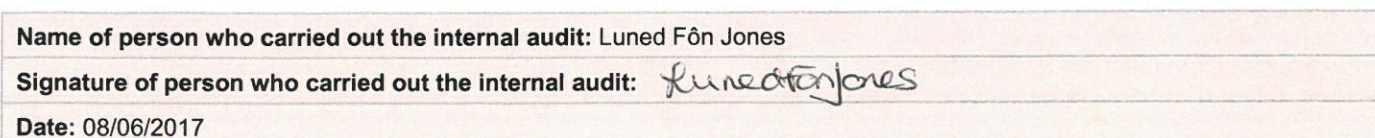 Name of person who carried out the internal audit: Luned Fôn Jones
Signature of person who carried out the internal audit: Luned Fôn Jones
Date: 08/06/2017